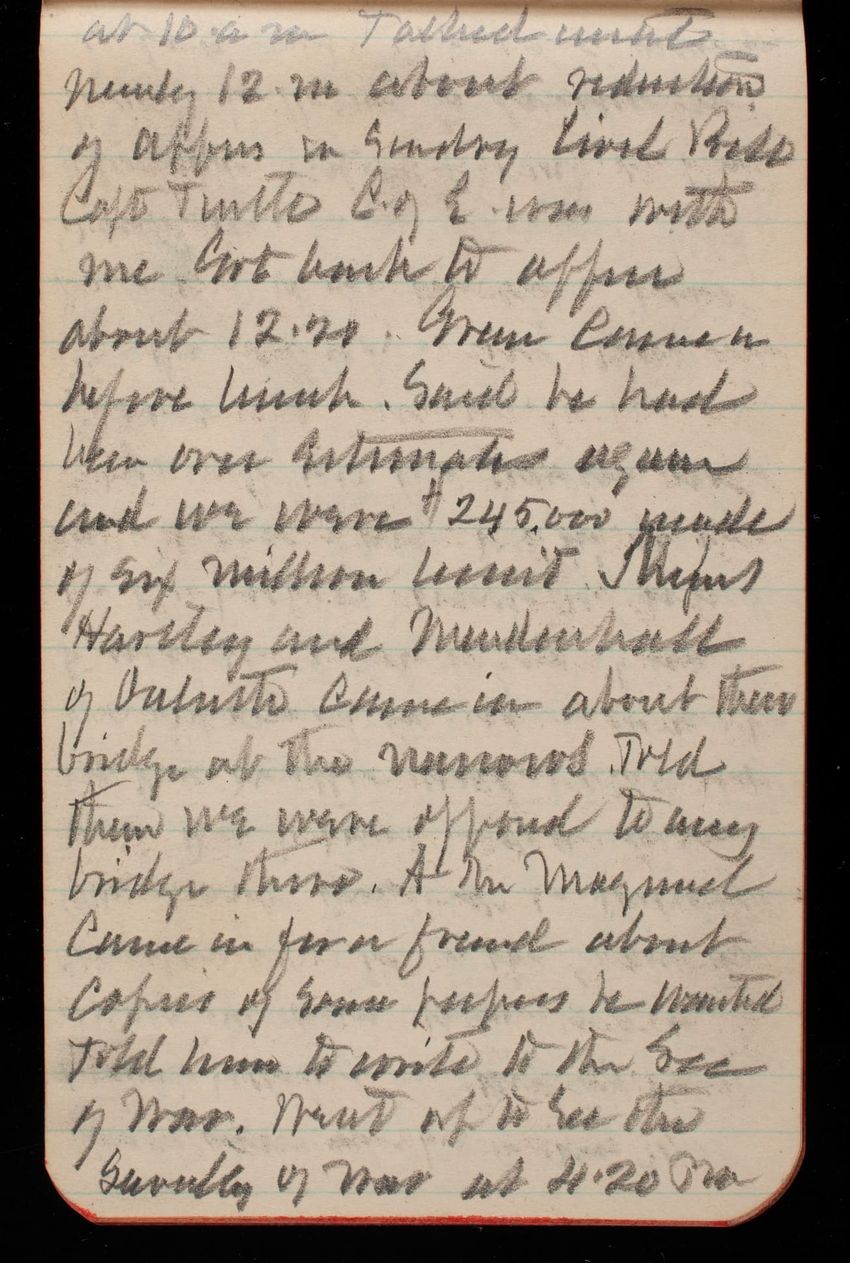 at 10 a m Talked until
nearly 12 m about reduction
of offices in Sundry Civil Bill
Capt Turtle C. of E. was with
me Got back to office
about 12.20. Green came in
before lunch. Said he had
been over Estimates again
and we were $245,000 inside
of six million limit
Hartley and Mendenhall
of Duluth came in about their
bridge at the narrows. Told
them we were opposed to any
bridge there. A Mr
Came in for a friend about
Copies of some papers he wanted
Told him to write to the Sec
of War. Went up to see the
of War at 4.20 Pm